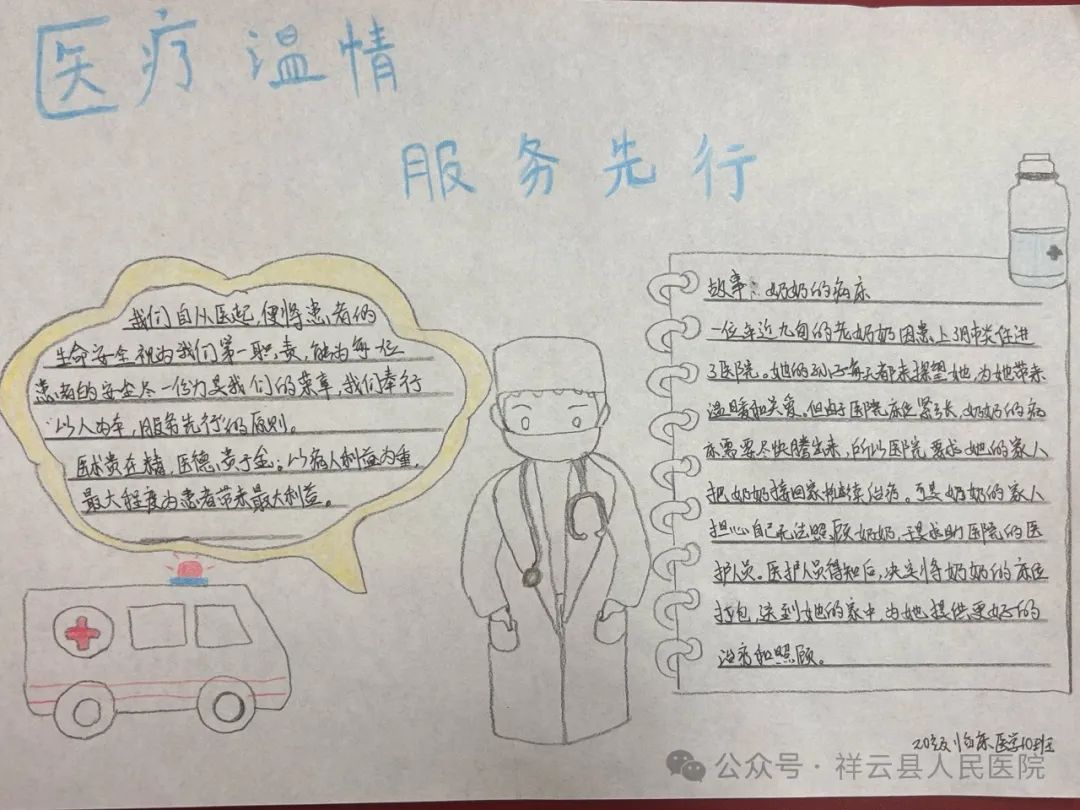 医疗温情
服务先行
我们自从医起,便将患者的
生命安全视为我们第一职责,能为每一位
患者的安全尽一份力是我们的荣幸,我们奉行
以人为本,服务先行的原则。
医术贵在精,医德贵于金;以病人利益为重,
最大程度为患者带来最大利益。
故事:奶奶的病床
一位年近九旬的老奶奶因患上肺炎住进
了医院。她的孙子每天都来探望她,为她带来
温暖和关爱。但由于医院床位紧张,奶奶的病
床需要尽快腾出来,所以医院要求她的家人
把奶奶接回家继续治病。可是奶奶的家人
担心自己无法照顾奶奶,于是求助医院的医
护人员。医护人员得知后,决定将奶奶的床位
打包,送到她的家中,为她提供更好的
治疗和照顾。
20级临床医学10班
公众号·祥云县人民医院